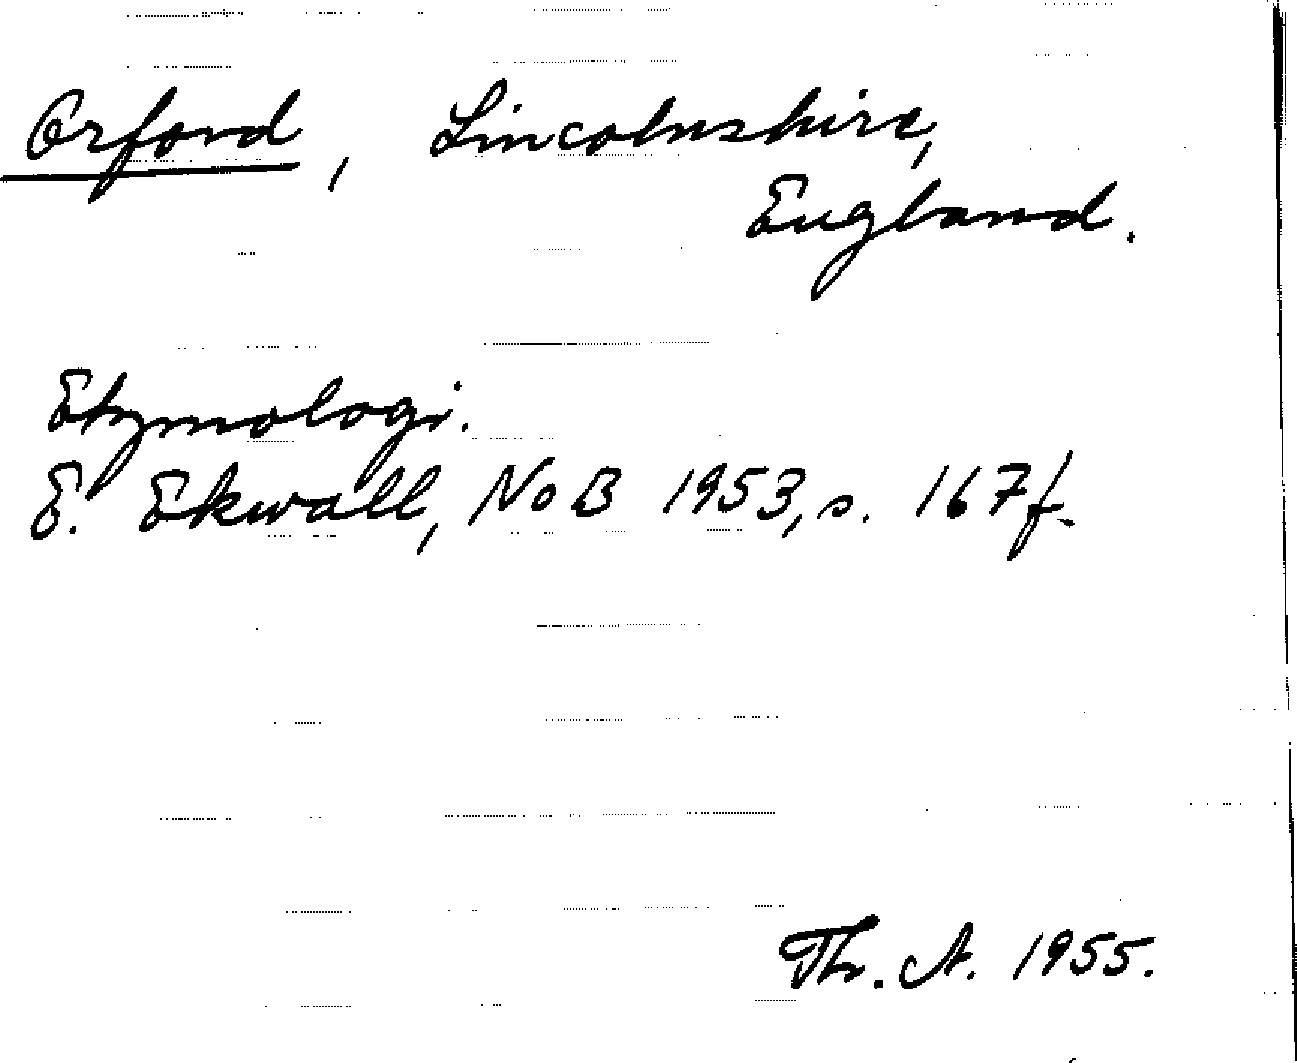 Orford, Lincolnshire,
England.
Etymologi.
E. Ekwall, NoB 1953, s. 167 f.
Th. A. 1955.